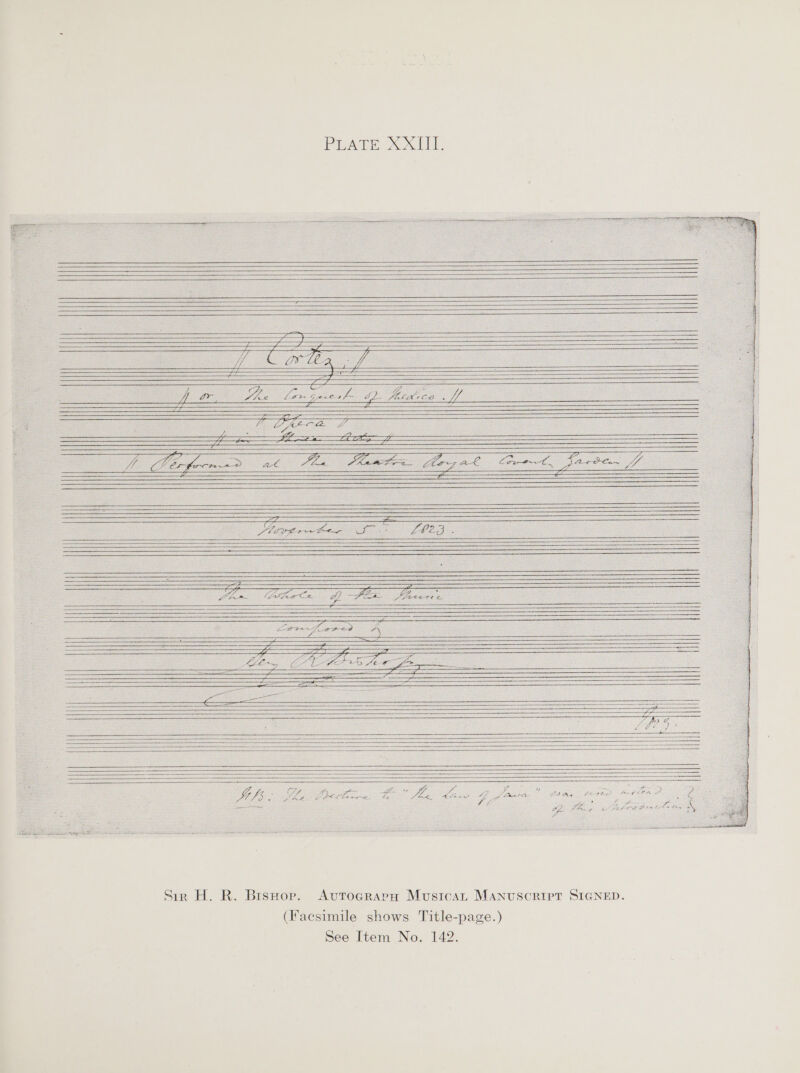 PLATE XXIII.
// Cortez, //
// or, The Conquest of Mexico. //
// Opera //
// in Three Acts //
// Performed at The Theatre Royal Covent Garden //
November 5th 1823.
The Whole of the Music
composed by
Henry R Bishop
1823.
NB: The Overture to "The Law of Java" was used instead
of this Introduction
SIR H. R. BISHOP. AUTOGRAPH MUSICAL MANUSCRIPT SIGNED.
(Facsimile shows Title-page.)
See Item No. 142.